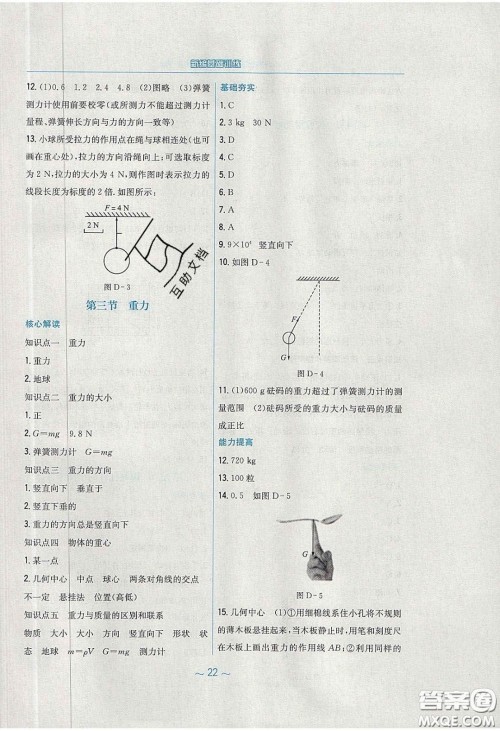 新编基础训练
12. (1)0.6 1.2 2.4 4.8 (2)图略 (3)弹簧
测力计使用前要校零(或所测力不能超过测力计
量程、弹簧伸长方向与力的方向一致等)
13. 小球所受拉力的作用点在绳与球相连处(也可
画在重心处),拉力的方向沿绳向上;可选取标度
为2 N,拉力的大小为4 N,则作图时表示拉力的
线段长度为标度的2倍.如图所示:
F=4 N
2 N
图 D-3
互助文档
第三节 重力
核心解读
知识点一 重力
1. 重力
2. 地球
知识点二 重力的大小
1. 正
2. G=mg 9.8 N
3. 弹簧测力计 G=mg
知识点三 重力的方向
1. 竖直向下 垂直于
2. 竖直下垂的
3. 重力的方向总是竖直向下
知识点四 物体的重心
1. 某一点
2. 几何中心 中点 球心 两条对角线的交点
不一定 悬挂法 位置(高低)
知识点五 重力与质量的区别和联系
物质 大小 大小 方向 竖直向下 形状 状
态 地球 m=ρV G=mg 测力计
基础夯实
1. C
2. 3 kg 30 N
3. C
4. D
5. D
6. A
7. A
8. A
9. 9×10⁴ 竖直向下
10. 如图 D-4
F
G
图 D-4
11. (1)600 g砝码的重力超过了弹簧测力计的测
量范围 (2)砝码所受的重力大小与砝码的质量
成正比
能力提高
12. 720 kg
13. 100粒
14. 0.5 如图 D-5
G
图 D-5
15. 几何中心 (1)①用细棉线系住小孔将不规则
的薄木板悬挂起来,当木板静止时,用笔和刻度尺
在木板上画出重力的作用线AB;②利用同样的
~ 22 ~
答案圈
MXQE.COM